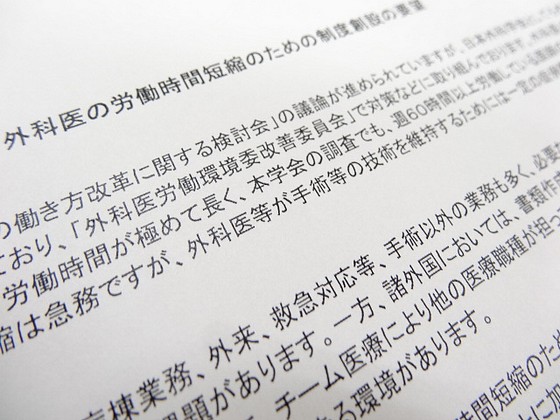 外科医の労働時間短縮のための制度創設の要望
の働き方改革に関する検討会」の議論が進められていますが、日本外科学会
ており、「外科医労働環境改善委員会」で対策などに取り組んでおります。
労働時間が極めて長く、本学会の調査でも、週60時間以上労働している
縮は急務ですが、外科医等が手術等の技術を維持するためには一定の
病棟業務、外来、救急対応等、手術以外の業務も多く、必要
問題があります。一方、諸外国においては、書類作
チーム医療により他の医療職種が担っ
る環境があります。
時間短縮のため